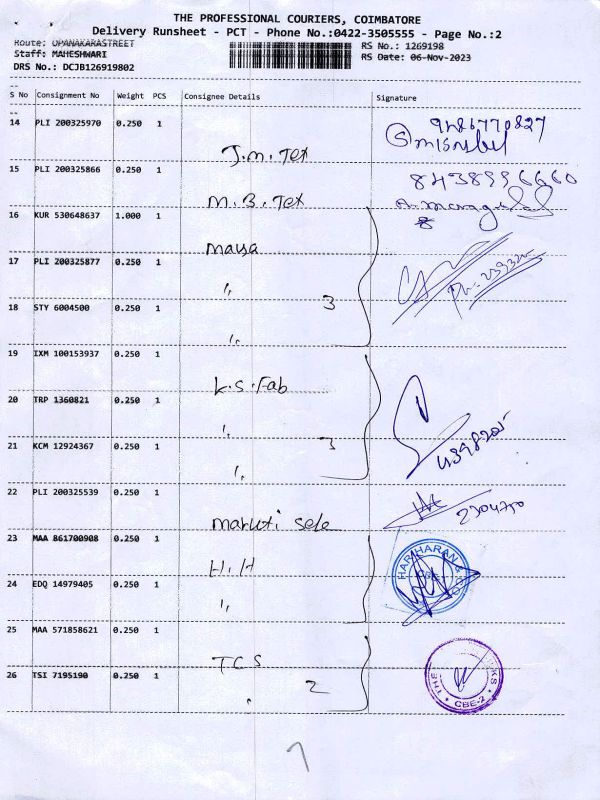 THE PROFESSIONAL COURIERS, COIMBATORE
Delivery Runsheet - PCT - Phone No.:0422-3505555 - Page No.:2
Route: OPANAKARASTREET
RS No.: 1269198
Staff: MAHESHWARI
RS Date: 06-Nov-2023
DRS No.: DCJB126919802
S No Consignment No Weight PCS Consignee Details Signature
14 PLI 200325970 0.250 1
J.M. Tex
15 PLI 200325866 0.250 1
8438996660
M.B. Tex
16 KUR 530648637 1.000 1
Maya
17 PLI 200325877 0.250 1
" 3
18 STY 6004500 0.250 1
"
19 IXM 100153937 0.250 1
L.S. Fab
20 TRP 1360821 0.250 1
" 3
21 KCM 12924367 0.250 1
"
22 PLI 200325539 0.250 1
Maruti Sele
23 MAA 861700908 0.250 1
H.H
HARIHARAN & CO
CBE-1
24 EDQ 14979405 0.250 1
"
25 MAA 571858621 0.250 1
TCS
26 TSI 7195190 0.250 1
" 2
THE
CBE-2